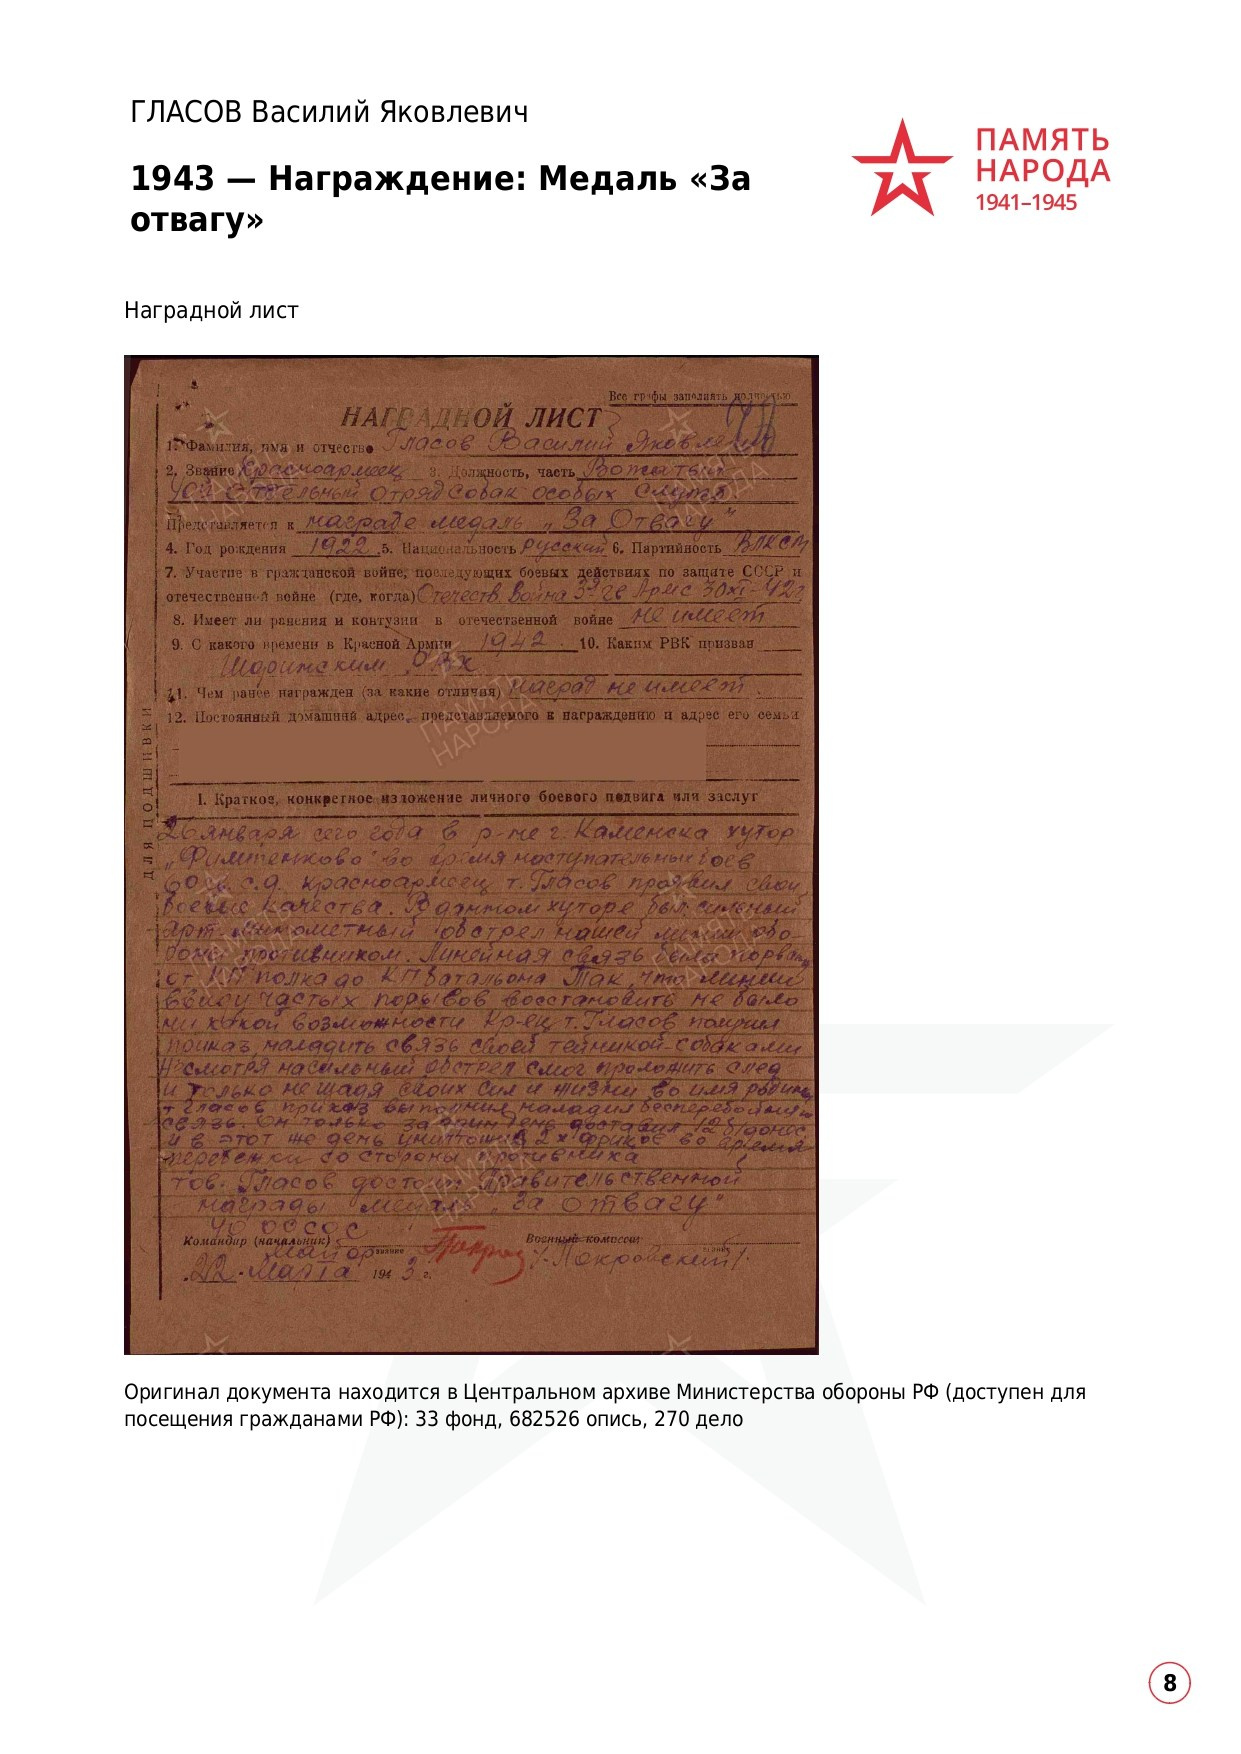 ГЛАСОВ Василий Яковлевич
1943 — Награждение: Медаль «За
отвагу»
ПАМЯТЬ
НАРОДА
1941–1945
Наградной лист
Все графы заполнять полностью
НАГРАДНОЙ ЛИСТ
1. Фамилия, имя и отчество Гласов Василий Яковлевич
2. Звание Красноармеец 3. Должность, часть Вожатый
40й Отдельный отряд собак особых служб
Представляется к награде медаль „За Отвагу"
4. Год рождения 1922 5. Национальность Русский 6. Партийность ВЛКСМ
7. Участие в гражданской войне, последующих боевых действиях по защите СССР и
отечественной войне (где, когда) Отечеств. Война 3й гв Арме 30 XI-42г
8. Имеет ли ранения и контузии в отечественной войне не имеет
9. С какого времени в Красной Армии 1942. 10. Каким РВК призван
Шаритским РВК
11. Чем ранее награжден (за какие отличия) наград не имеет.
12. Постоянный домашний адрес, представляемого к награждению и адрес его семьи
ДЛЯ ПОДШИВКИ
I. Краткое, конкретное изложение личного боевого подвига или заслуг
26 января сего года в р-не г. Каменска хутор
во время наступательных боев
60 с.д. красноармеец т. Гласов проявил свои
боевые качества. В данном хуторе был сильный
арт. минометный обстрел нашей линии обо-
роны противником. Линейная связь была порвана
от КП полка до КП Батальона Так, что линии
ввиду частых порывов восстановить не было
ни какой возможности Кр-ец т. Гласов получил
приказ наладить связь своей техникой-собаками
Несмотря на сильный обстрел смог проложить след
и только не щадя своих сил и жизни во имя родины
т Гласов приказ выполнил наладил бесперебойную
связь. Он только за один день доставил 12 б/донос
и в этот же день уничтожил 2х фрицов во время
перебежки со стороны противника
тов. Гласов достоин Правительственной
награды медаль „За отвагу"
40 ООСОС
Командир (начальник) Военный комиссар
Майор звание /-Покровский/
„22" Марта 1943 г.
Оригинал документа находится в Центральном архиве Министерства обороны РФ (доступен для
посещения гражданами РФ): 33 фонд, 682526 опись, 270 дело
8